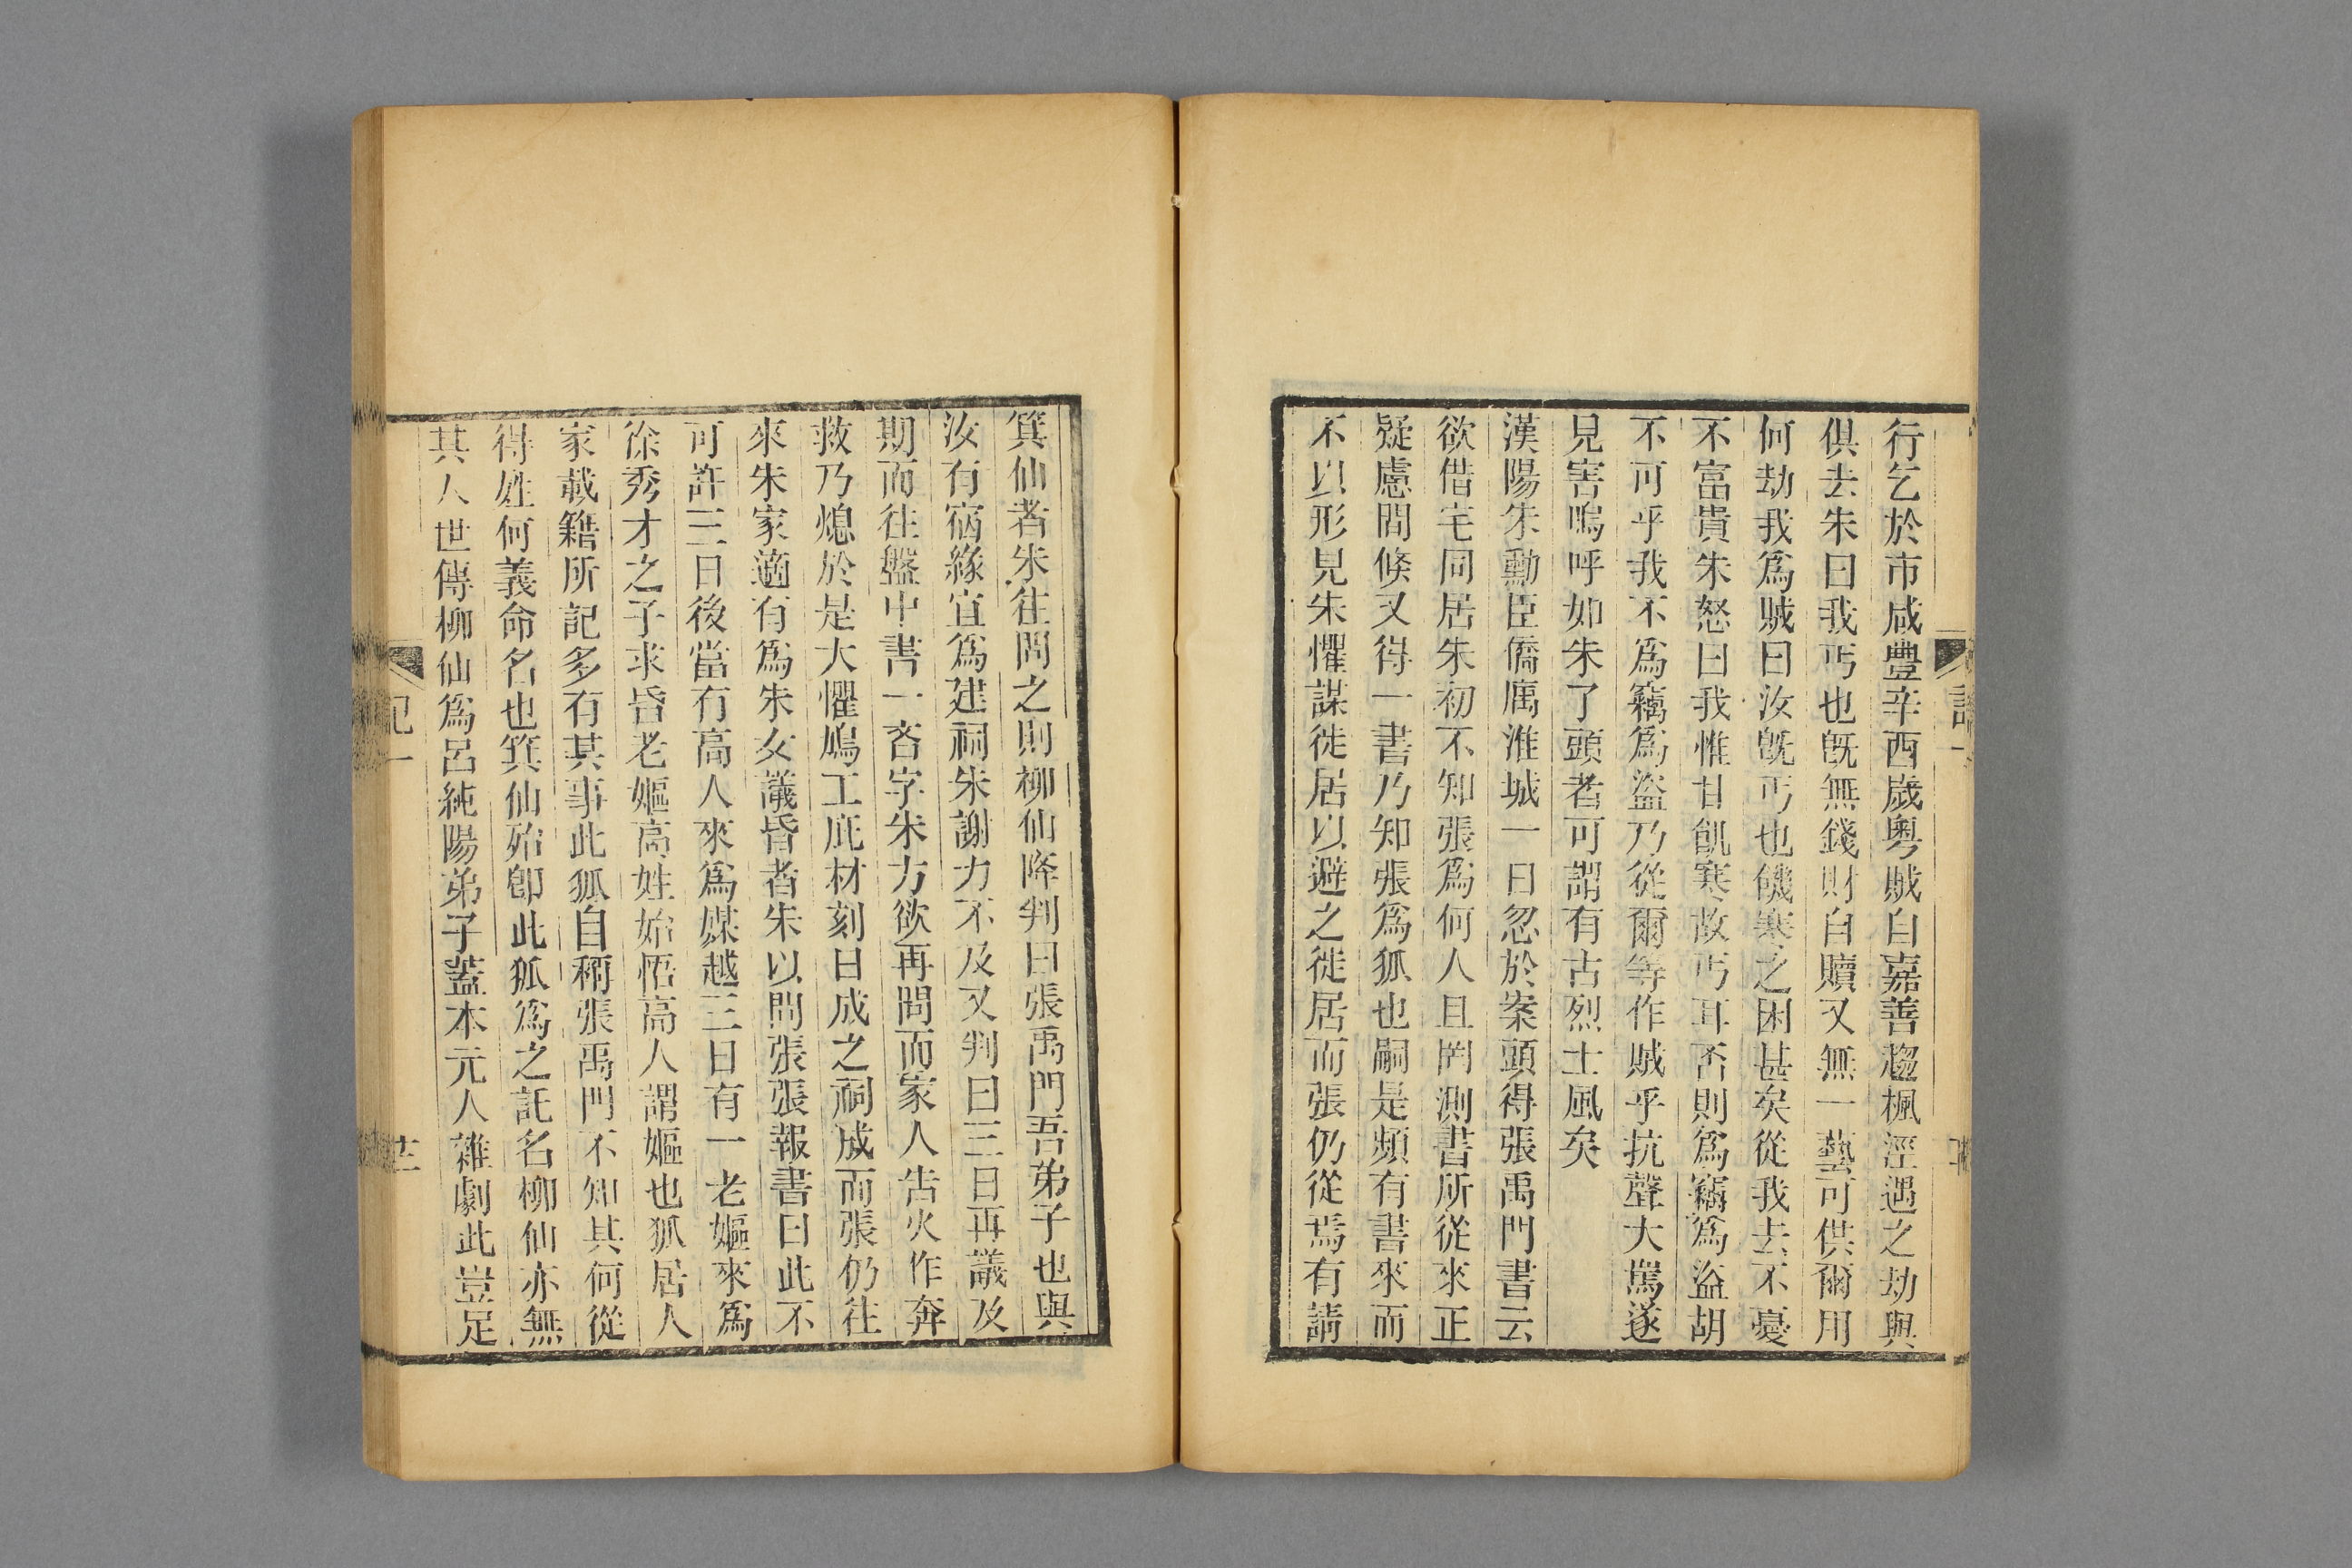 行乞於市咸豐辛酉歲粵賊自嘉善趨楓涇遇之劫與
俱去朱曰我丐也旣無錢財自贖又無一藝可供爾用
何劫我爲賊曰汝旣丐也饑寒之困甚矣從我去不憂
不富貴朱怒曰我惟甘飢寒故丐耳否則爲竊爲盜胡
不可乎我不爲竊爲盜乃從爾等作賊乎抗聲大駡遂
見害嗚呼如朱了頭者可謂有古烈士風矣
漢陽朱勳臣僑寓淮城一日忽於案頭得張禹門書云
欲借宅同居朱初不知張爲何人且罔測書所從來正
疑慮閒倏又得一書乃知張爲狐也嗣是頻有書來而
不以形見朱懼謀徙居以避之徙居而張仍從焉有請
箕仙者朱往問之則柳仙降判曰張禹門吾弟子也與
汝有宿緣宜爲建祠朱謝力不及又判曰三日再議及
期而往盤中書一吝字朱方欲再問而家人告火作奔
救乃熄於是大懼鳩工庀材刻日成之祠成而張仍往
來朱家適有爲朱女議昏者朱以問張張報書曰此不
可許三日後當有高人來爲媒越三日有一老嫗來爲
徐秀才之子求昏老嫗高姓始悟高人謂嫗也狐居人
家載籍所記多有其事此狐自稱張禹門不知其何從
得姓何義命名也箕仙殆卽此狐爲之託名柳仙亦無
其人世傳柳仙爲呂純陽弟子蓋本元人雜劇此豈足
記一